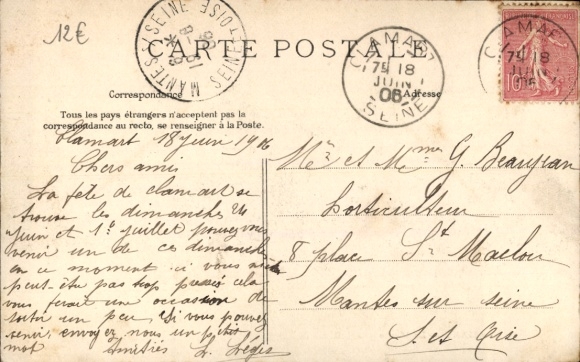 12€
MANTES-S-SEINE
SEINE-ET-OISE
CARTE POSTALE
CLAMART
7E 18
JUIN
06
SEINE
CLAMART
7E 18
06
10
Correspondance
Adresse
Tous les pays étrangers n'acceptent pas la
correspondance au recto, se renseigner à la Poste.
Clamart 18 juin 1906
Chers amis
La fête de clamart se
trouve les dimanches 24
juin et 1er juillet pouvez vous
venir un de ces dimanches
en ce moment ci vous
peut être pas trop pressés cela
vous ferait une occasion de
sortir un peu si vous pouvez
venir envoyez nous un petit
mot
Amitiés L.
Mr et Mme G. Beaujean
horticulteur
8 place St Maclou
Mantes sur seine
S. et Oise